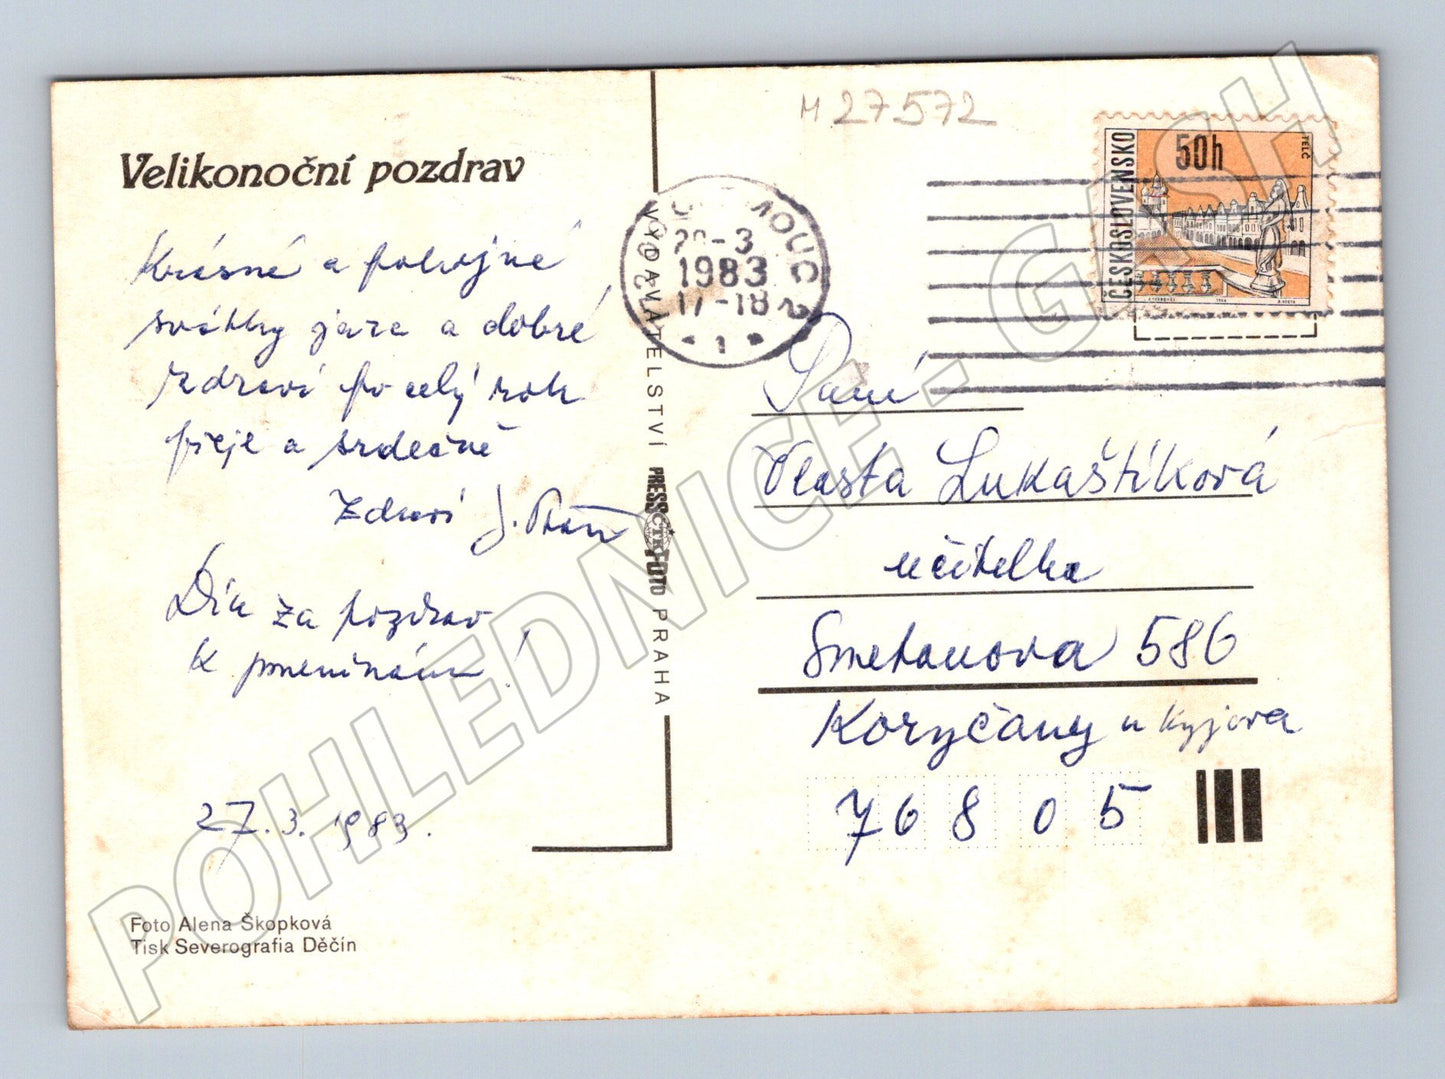 M 27572
Velikonoční pozdrav
Krásné a pokojné
svátky jara a dobré
zdraví po celý rok
přeje a srdečně
zdraví J.
Dík za pozdrav
k jmeninám!
27.3. 1983.
Foto Alena Škopková
Tisk Severografia Děčín
VYDAVATELSTVÍ PRESSFOTO PRAHA
ČTK
1983
17-18
1
ČESKOSLOVENSKO
50h
TELČ
Paní
Vlasta Lukaštíková
učitelka
Smetanova 586
Koryčany u Kyjova
76805
POHLEDNICE - GASH